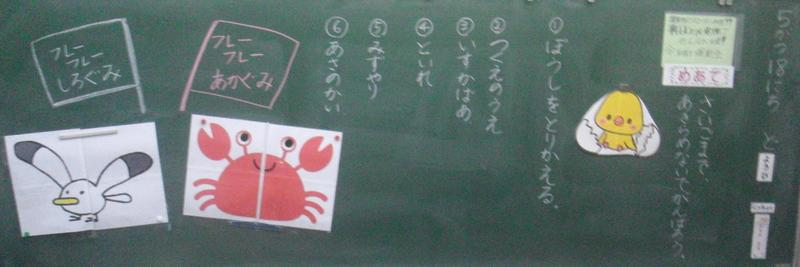 5がつ18にち ど
ようび
めあて
さいごまで、
あきらめないでがんばろう。
①ぼうしをとりかえる。
②つくえのうえ
③いすかはめ
④といれ
⑤みずやり
⑥あさのかい
フレー
フレー
あかぐみ
フレー
フレー
しろぐみ